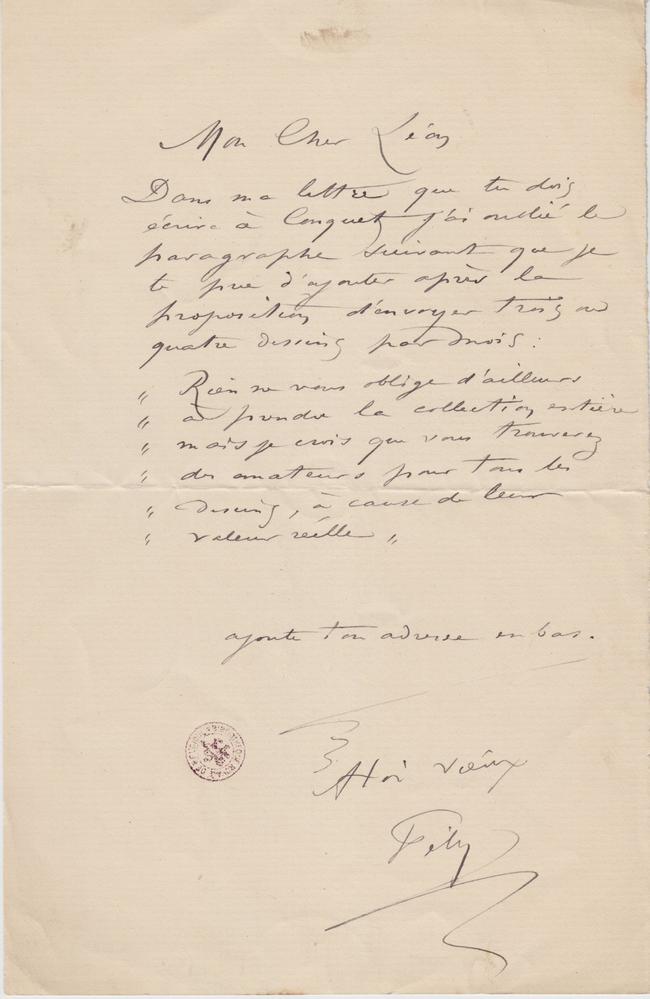 Mon Cher Léon
Dans ma lettre que tu dois
écrire à Conquet j'ai oublié le
paragraphe suivant que je
te prie d'ajouter après la
proposition d'envoyer trois ou
quatre dessins par mois :
" Rien ne vous oblige d'ailleurs
" à prendre la collection entière
" mais je crois que vous trouverez
" des amateurs pour tous les
" dessins, à cause de leur
" valeur réelle "
ajoute ton adresse en bas.
vieux